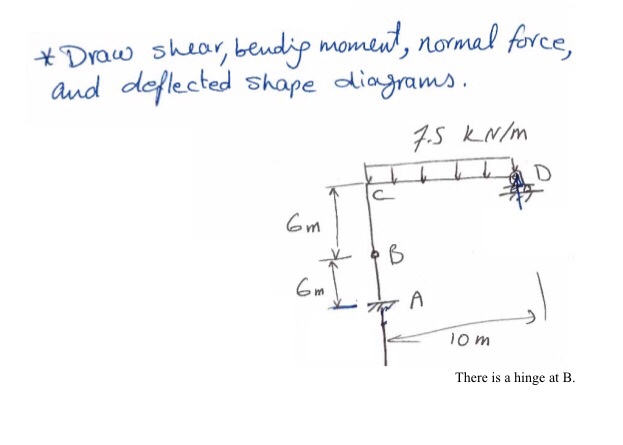 * Draw shear, bending moment, normal force,
and deflected shape diagrams.
7.5 kN/m
D
C
6m
B
6m
A
10 m
There is a hinge at B.